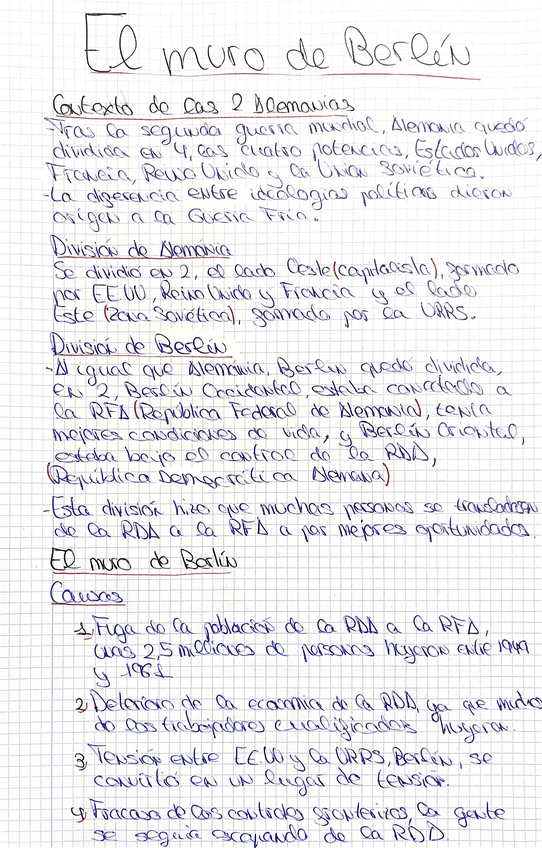 El muro de Berlín
Contexto de las 2 Alemanias
-Tras la segunda guerra mundial, Alemania quedó
dividida en 4, las cuatro potencias, Estados Unidos,
Francia, Reino Unido y la Unión Soviética.
-La diferencia entre ideologías políticas dieron
origen a la Guerra Fría.
División de Alemania
Se dividió en 2, el lado Oeste (capitalista), formado
por EEUU, Reino Unido y Francia y el lado
Este (zona Soviética), formado por la URRS.
División de Berlín
-Al igual que Alemania, Berlín quedó dividida,
en 2, Berlín Occidental, estaba conectado a
la RFA (República Federal de Alemania), tenía
mejores condiciones de vida, y Berlín Oriental,
estaba bajo el control de la RDA,
(República Democrática Alemana)
-Esta división hizo que muchas personas se trasladasen
de la RDA a la RFA a por mejores oportunidades.
El muro de Berlín
Causas
1, Fuga de la población de la RDA a la RFA,
unas 2,5 millones de personas huyeron entre 1949
y 1961
2, Deterioro de la economía de la RDA, ya que muchos
de los trabajadores cualificados huyeron.
3, Tensión entre EEUU y la URRS, Berlín, se
convirtió en un lugar de tensión.
4, Fracaso de los controles fronterizos, la gente
se seguía escapando de la RDA.